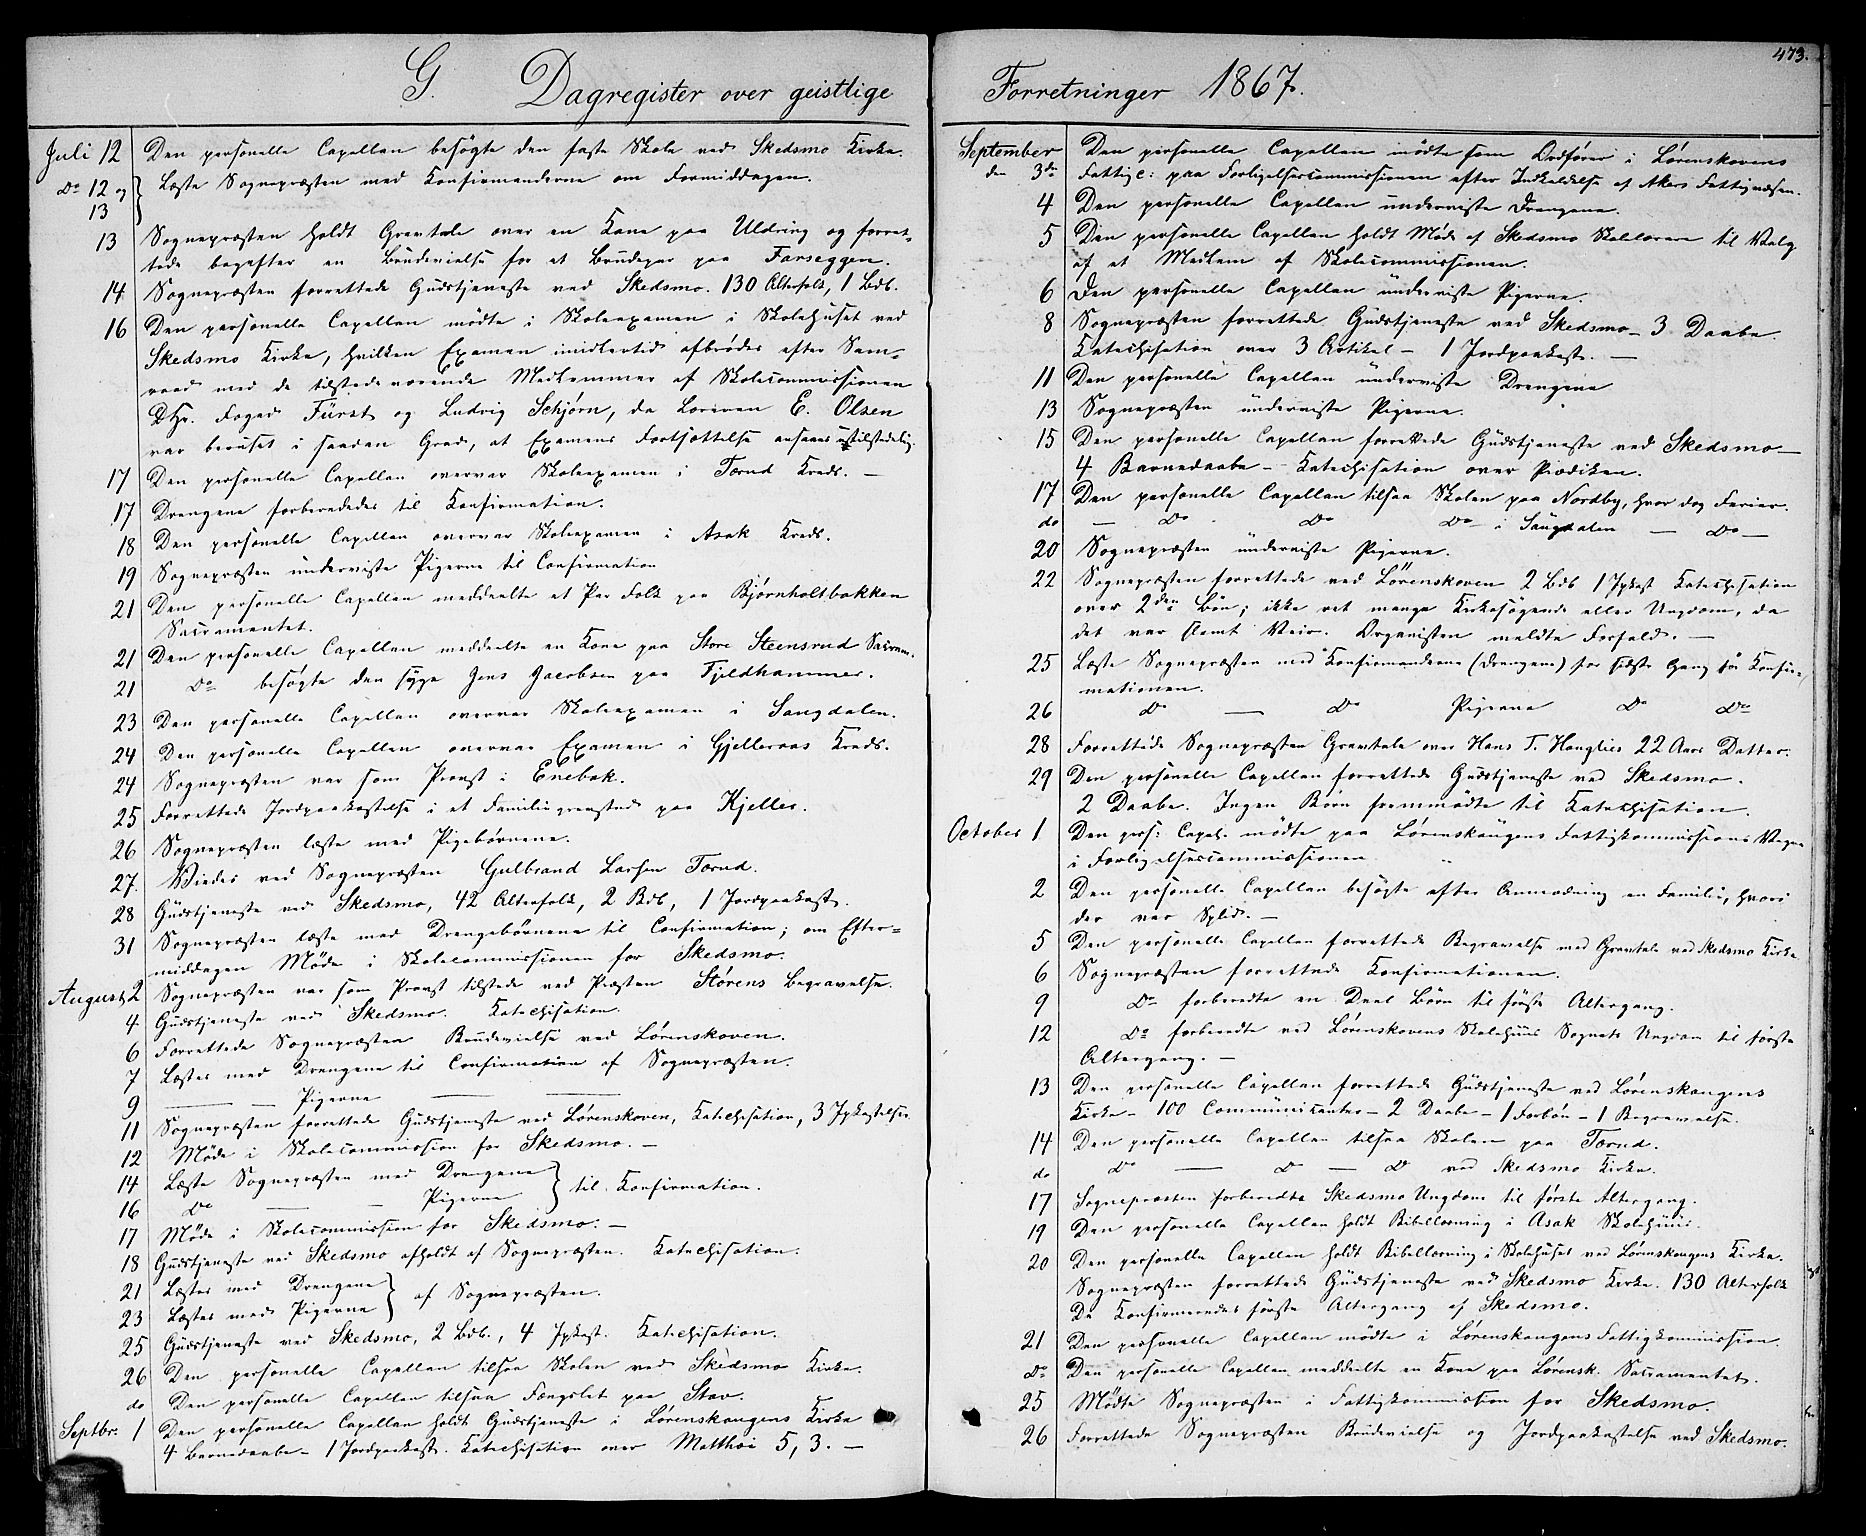 G. Dagregister over geistlige
Juli 12 Den personelle Capellan besögte den faste Skole ved Skedsmo Kirke.
Do 12 og 13 Læste Sognepræsten med Konfirmanderne om Formiddagen.
13 Sognepræsten holdt Gravtale over en Kone paa Uldring og forret-
tede bagefter en Brudevielse for et Brudepar paa Farseggen.
14 Sognepræsten forrettede Gudstjeneste ved Skedsmo. 130 Alterfolk, 1 Bdb.
16 Den personelle Capellan mödte i Skoleexamen i Skolehuset ved
Skedsmo Kirke, hvilken Examen imidlertid afbrödes efter Sam-
raad med de tilstedeværende Medlemmer af Skolecommissionen
DHr. Foged Fürst og Ludvig Schjørn, da Læreren E. Olsen
var beruset i saadan Grad, at Examens Fortsættelse ansaaes utilstedelig.
17 Den personelle Capellan overvar Skoleexamen i Tærud Kreds. —
17 Drengene forberededes til Konfirmation.
18 Den personelle Capellan overvar Skoleexamen i Asak Kreds.
19 Sognepræsten underviste Pigerne til Confirmation
21 Den personelle Capellan meddeelte et Par Folk paa Bjørnholtbakken
Sacramentet.
21 Den personelle Capellan meddeelte en Kone paa Store Steensrud Sacram.
21 Do besögte den syge Jens Jacobsen paa Fjeldhammer.
23 Den personelle Capellan overvar Skoleexamen i Saugdalen.
24 Den personelle Capellan overvar Examen i Gjelleraas Kreds.
24 Sognepræsten var som Provst i Enebak.
25 Forrettede Jordpaakastelse i et Familiegravsted paa Kjeller.
26 Sognepræsten læste med Pigebörnene.
27. Viedes ved Sognepræsten Gulbrand Larsen Tærud.
28 Gudstjeneste ved Skedsmo, 42 Alterfolk, 2 Bdb, 1 Jordpaakast.
31 Sognepræsten læste med Drengebörnene til Confirmation; om Efter-
middagen Möde i Skolecommissionen for Skedsmo.
August 2 Sognepræsten var som Provst tilstede ved Præsten Störens Begravelse.
4 Gudstjeneste ved Skedsmo. Katechisation.
6 Forrettede Sognepræsten Brudevielse ved Lørenskoven.
7 Læstes med Drengene til Confirmation af Sognepræsten.
9 — — Pigerne — —
11 Sognepræsten forrettede Gudstjeneste ved Lørenskoven, Katechisation, 3 Jpkastelser.
12 Möde i Skolecommission for Skedsmo. —
14 Læste Sognepræsten med Drengene } til Konfirmation.
16 Do — — Pigerne
17 Möde i Skolecommission for Skedsmo. —
18 Gudstjeneste ved Skedsmo afholdt af Sognepræsten. Katechisation.
21 Læstes med Drengene } af Sognepræsten.
23 Læstes med Pigerne
25 Gudstjeneste ved Skedsmo, 2 Bdb., 4 Jpkast. Katechisation.
26 Den personelle Capellan tilsaa Skolen ved Skedsmo Kirke.
do Den personelle Capellan tilsaa Fængslet paa Stav.
Septbr. 1 Den personelle Capellan holdt Gudstjeneste i Lørenskougens Kirke
4 Barnedaabe — 1 Jordpaakast. Katechisation over Matthæi 5, 3. —
Forretninger 1867.
473.
September den 3de Den personelle Capellan mödte som Ordförer i Lørenskovens
Fattigc: paa Forligelsescommissionen efter Indkaldelse af Akers Fattigvæsen.
4 Den personelle Capellan underviste Drengene.
5 Den personelle Capellan holdt Möde af Skedsmo Skolelærere til Valg
af et Medlem af Skolecommissionen.
6 Den personelle Capellan underviste Pigerne.
8 Sognepræsten forrettede Gudstjeneste ved Skedsmo — 3 Daabe.
Katechisation over 3 Artikel — 1 Jordpaakast. —
11 Den personelle Capellan underviste Drengene
13 Sognepræsten underviste Pigerne.
15 Den personelle Capellan forrettede Gudstjeneste ved Skedsmo —
4 Barnedaabe — Katechisation over Prædiken.
17 Den personelle Capellan tilsaa Skolen paa Nordby, hvor dog Ferier.
do — Do Do Do — i Saugdalen — Do —
20 Sognepræsten underviste Pigerne.
22 Sognepræsten forrettede ved Lörenskoven 2 Bdb 1 Jpkast Katechisation
over 2den Bön; ikke ret mange Kirkesögende eller Ungdom, da
det var slemt Veir. Organisten meldte Forfald. —
25 Læste Sognepræsten med Konfirmanderne (Drengene) for sidste Gang för Konfir-
mationen.
26 Do — Do Pigerne Do Do
28 Forrettede Sognepræsten Gravtale over Hans T. Hauglies 22 Aars Datter.
29 Den personelle Capellan forrettede Gudstjeneste ved Skedsmo.
2 Daabe. Ingen Börn fremmödte til Katechisation.
October 1 Den pers: Capel. mödte paa Lørenskougens Fattigkommissions Vegne
i Forligelsescommissionen
2 Den personelle Capellan besögte efter Anmodning en Familie, hvori
der var Splid. —
5 Den personelle Capellan forrettede Begravelse med Gravtale ved Skedsmo Kirke
6 Sognepræsten forrettede Konfirmationen.
9 Do forberedte en Deel Börn til förste Altergang.
12 Do forberedte ved Lørenskovens Skolehuus Sognets Ungdom til förste
Altergang. —
13 Den personelle Capellan forrettede Gudstjeneste ved Lørenskougens
Kirke — 100 Communikanter — 2 Daabe — 1 Forbön — 1 Begravelse.
14 Den personelle Capellan tilsaa Skolen paa Tærud.
do Do — Do — Do ved Skedsmo Kirke.
17 Sognepræsten forberedte Skedsmo Ungdom til förste Altergang.
19 Den personelle Capellan holdt Bibellæsning i Asak Skolehuus.
20 Den personelle Capellan holdt Bibellæsning i Skolehuset ved Lørenskougens Kirke.
Sognepræsten forrettede Gudstjeneste ved Skedsmo Kirke. 130 Alterfolk
De Konfirmeredes förste Altergang af Skedsmo.
21 Den personelle Capellan mödte i Lørenskougens Fattigkommission.
Do Den personelle Capellan meddeelte en Kone paa Lørensk. Sacramentet.
25 Mödte Sognepræsten i Fattigkommission for Skedsmo.
26 Forrettede Sognepræsten Brudevielse og Jordpaakastelse ved Skedsmo.